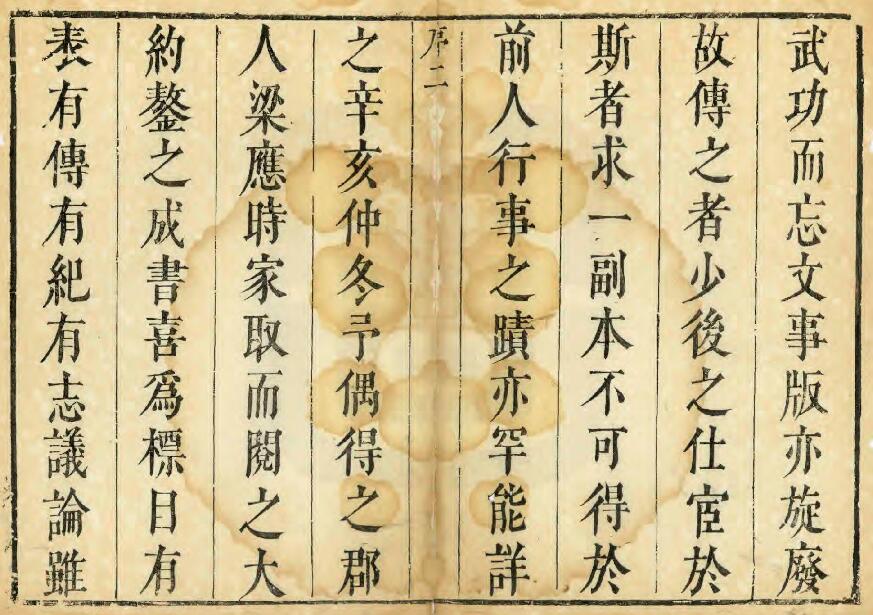 武功而忘文事版亦旋廢
故傳之者少後之仕宦於
斯者求一副本不可得於
前人行事之蹟亦罕能詳
序二
之辛亥仲冬予偶得之郡
人梁應時家取而閱之大
約鏊之成書喜為標目有
表有傳有紀有志議論雖